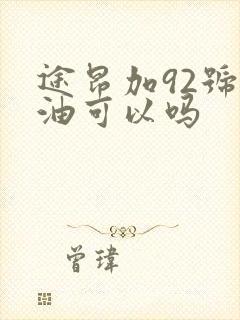 途昂加92號
油可以吗
曾瑋